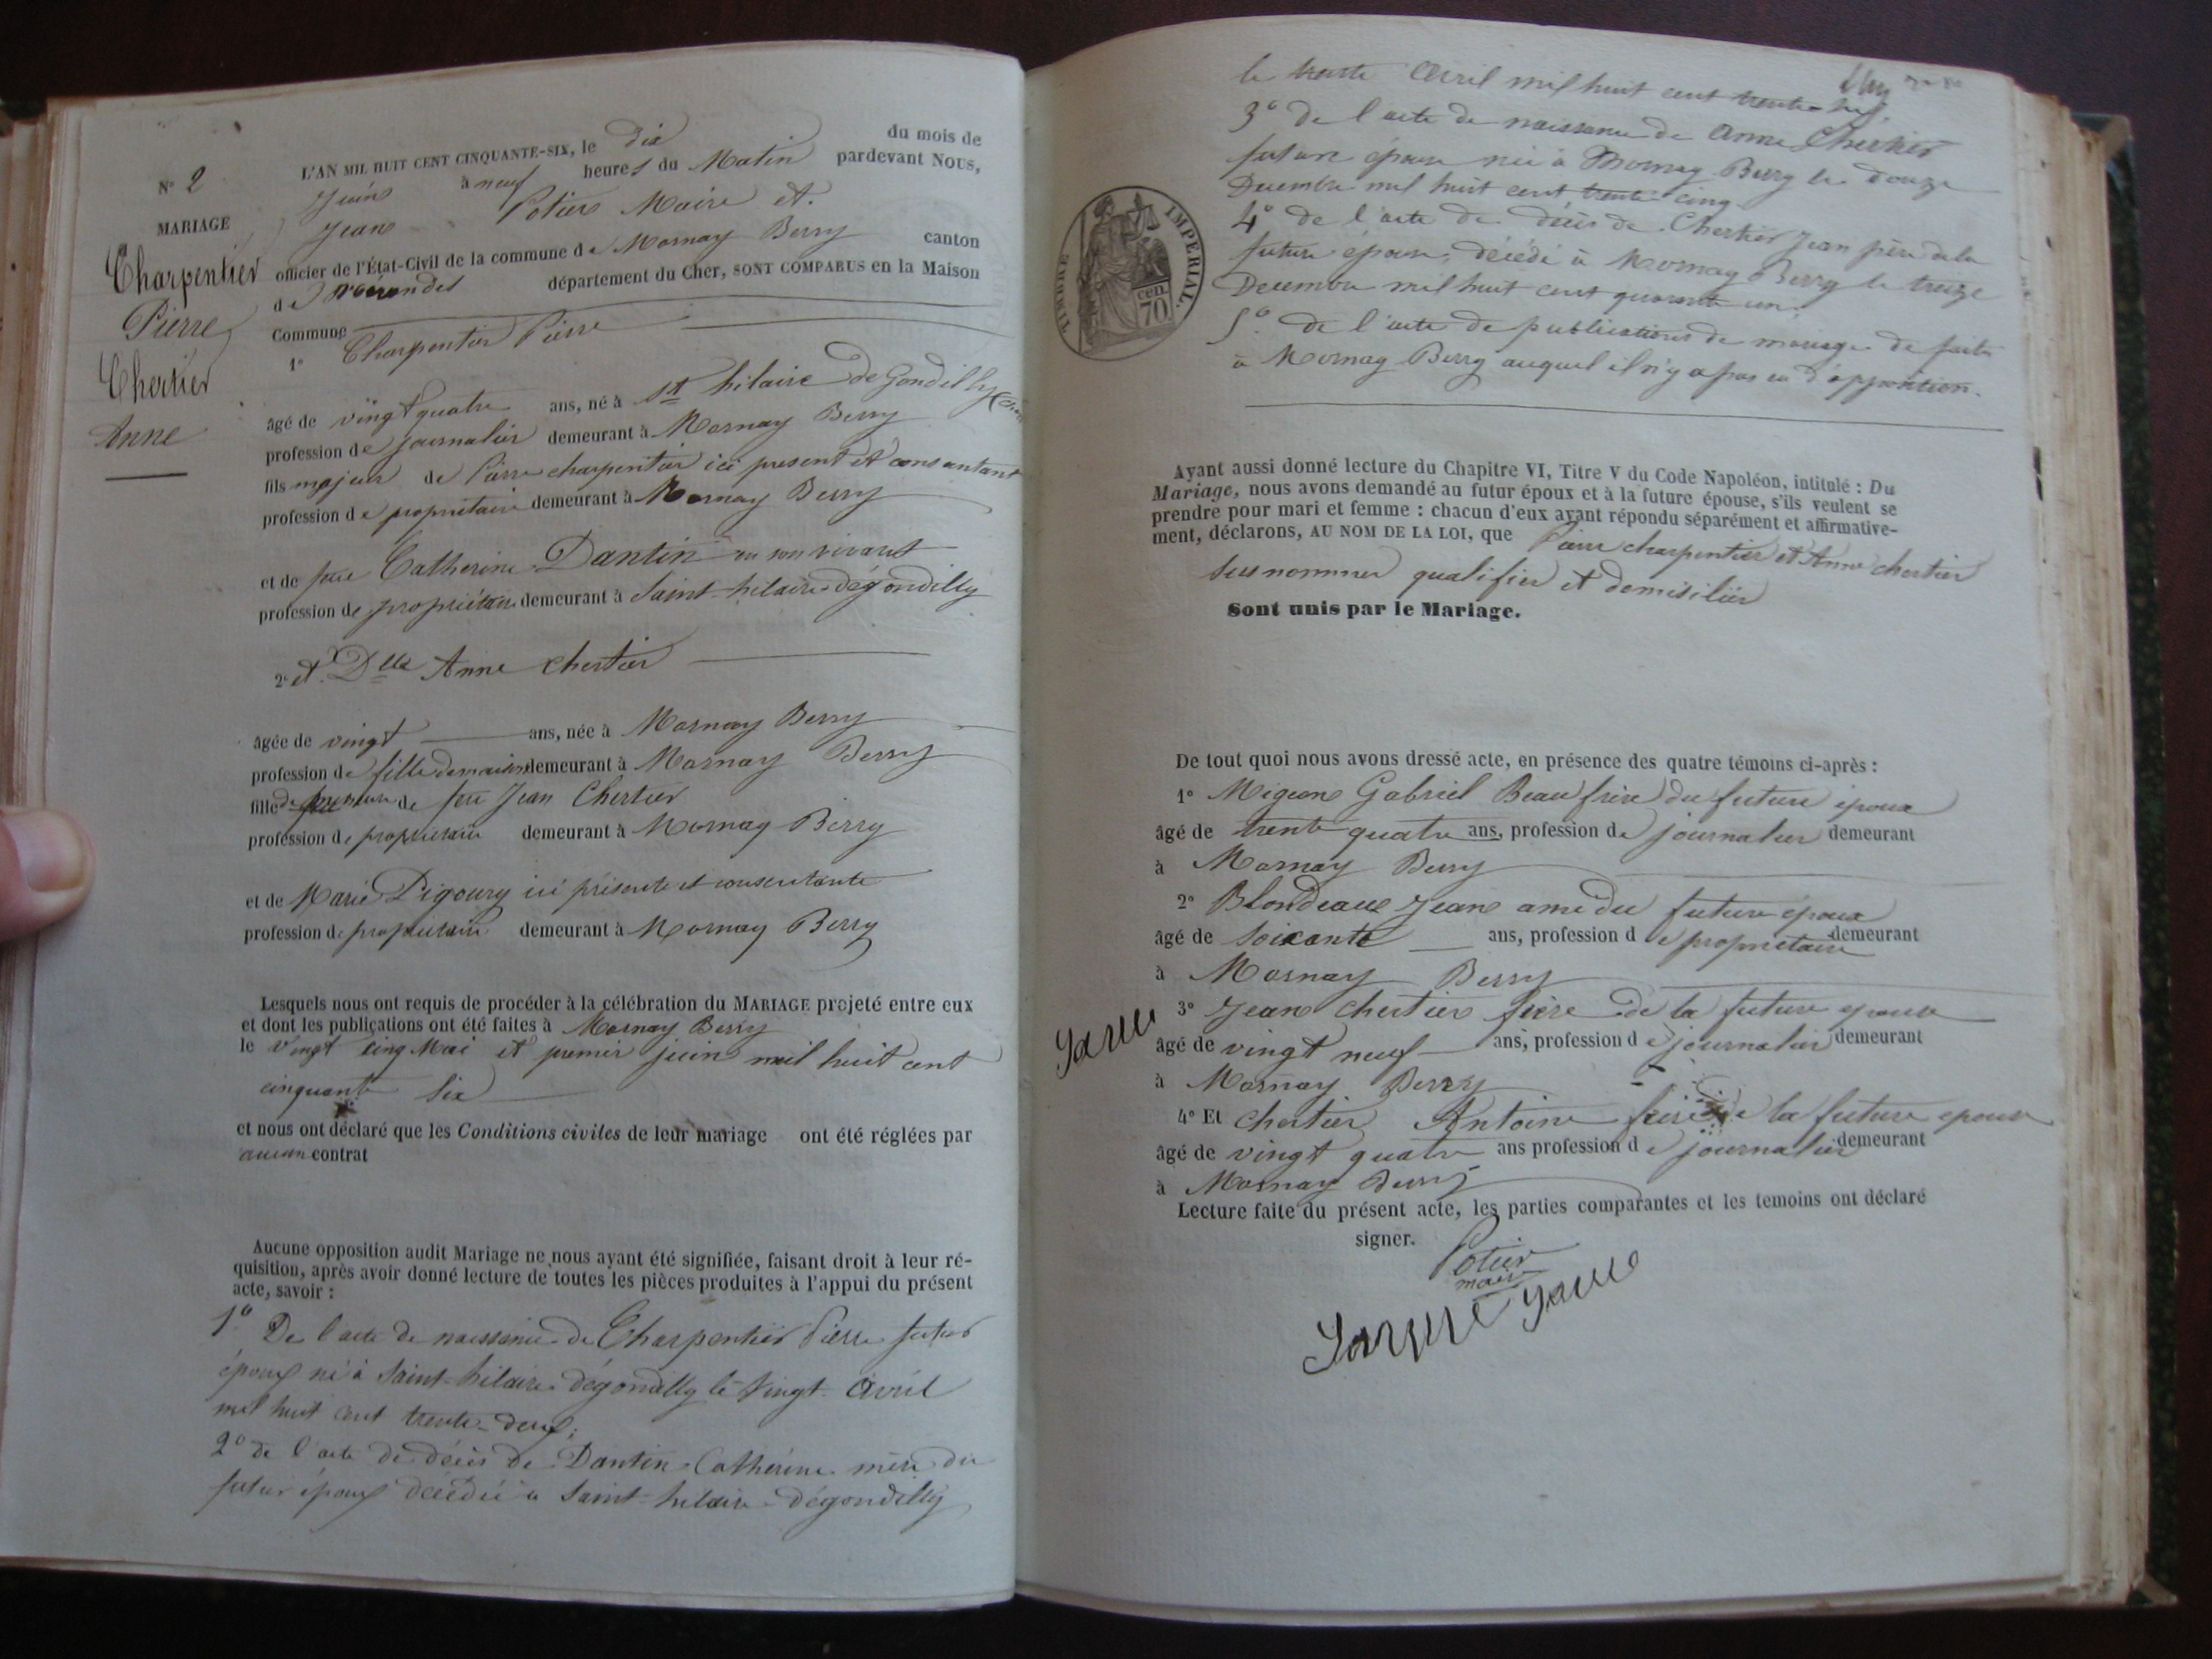 N° 2
MARIAGE
Charpentier
Pierre
Chertier
Anne
L'AN MIL HUIT CENT CINQUANTE-SIX, le dix du mois de
Juin à neuf heures du Matin pardevant Nous,
Jean Potier Maire et
officier de l'État-Civil de la commune de Mornay Berry canton
de Nérondes département du Cher, SONT COMPARUS en la Maison
Commune
1° Charpentier Pierre
âgé de vingt quatre ans, né à St hilaire de Gondilly (Cher
profession de journalier demeurant à Mornay Berry
fils majeur de Pierre charpentier ici present et consantant
profession de propriétaire demeurant à Mornay Berry
et de feue Catherine Dantin en son vivant
profession de propriétaire demeurant à Saint-hilaire dégondilly
2° et Dlle Anne chertier
âgée de vingt ans, née à Mornay Berry
profession de fille demaison demeurant à Mornay Berry
fille mineure de feu Jean Chertier
profession de propriétaire demeurant à Mornay Berry
et de Marie Pigoury ici présente et consentante
profession de propriétaire demeurant à Mornay Berry
Lesquels nous ont requis de procéder à la célébration du MARIAGE projeté entre eux
et dont les publications ont été faites à Mornay Berry
le vingt cinq Mai et premier juin mil huit cent
cinquante six
et nous ont déclaré que les Conditions civiles de leur mariage ont été réglées par
aucun contrat
Aucune opposition audit Mariage ne nous ayant été signifiée, faisant droit à leur ré-
quisition, après avoir donné lecture de toutes les pièces produites à l'appui du présent
acte, savoir :
1° De l'acte de naissance de Charpentier Pierre futur
époux né à Saint-hilaire dégondilly le Vingt Avril
mil huit cent trente-deux;
2° de l'acte de décès de Dantin Catherine mère du
futur époux décédée à Saint-hilaire dégondilly
le trente Avril mil huit cent trente-six
3° de l'acte de naissance de Anne Chertier
future épouse née à Mornay Berry le douze
Decembre mil huit cent trente cinq
4° de l'acte de décès de Chertier Jean père de la
future épouse, décédé à Mornay Berry le treize
Decembre mil huit cent quarante un.
5° de l'acte de publications de mariage de faites
à Mornay Berry auquel il n'y a pas eu d'opposition.
TIMBRE IMPÉRIAL.
70 cen.
Ayant aussi donné lecture du Chapitre VI, Titre V du Code Napoléon, intitulé : Du
Mariage, nous avons demandé au futur époux et à la future épouse, s'ils veulent se
prendre pour mari et femme : chacun d'eux ayant répondu séparément et affirmative-
ment, déclarons, AU NOM DE LA LOI, que Pierre charpentier et Anne chertier
sus nommer qualifier et domisilier
Sont unis par le Mariage.
De tout quoi nous avons dressé acte, en présence des quatre témoins ci-après :
1° Migeon Gabriel Beau frère du future époux
âgé de trente quatre ans, profession de journalier demeurant
à Mornay Berry
2° Blondeau Jean ami du future époux
âgé de soixante ans, profession de propriétaire demeurant
à Mornay Berry
3° Jean chertier frère de la future epouse
âgé de vingt neuf ans, profession de journalier demeurant
à Mornay Berry
4° Et chertier Antoine frère de la future epouse
âgé de vingt quatre ans profession de journalier demeurant
à Mornay Berry
Lecture faite du présent acte, les parties comparantes et les temoins ont déclaré
signer.
Potier
maire